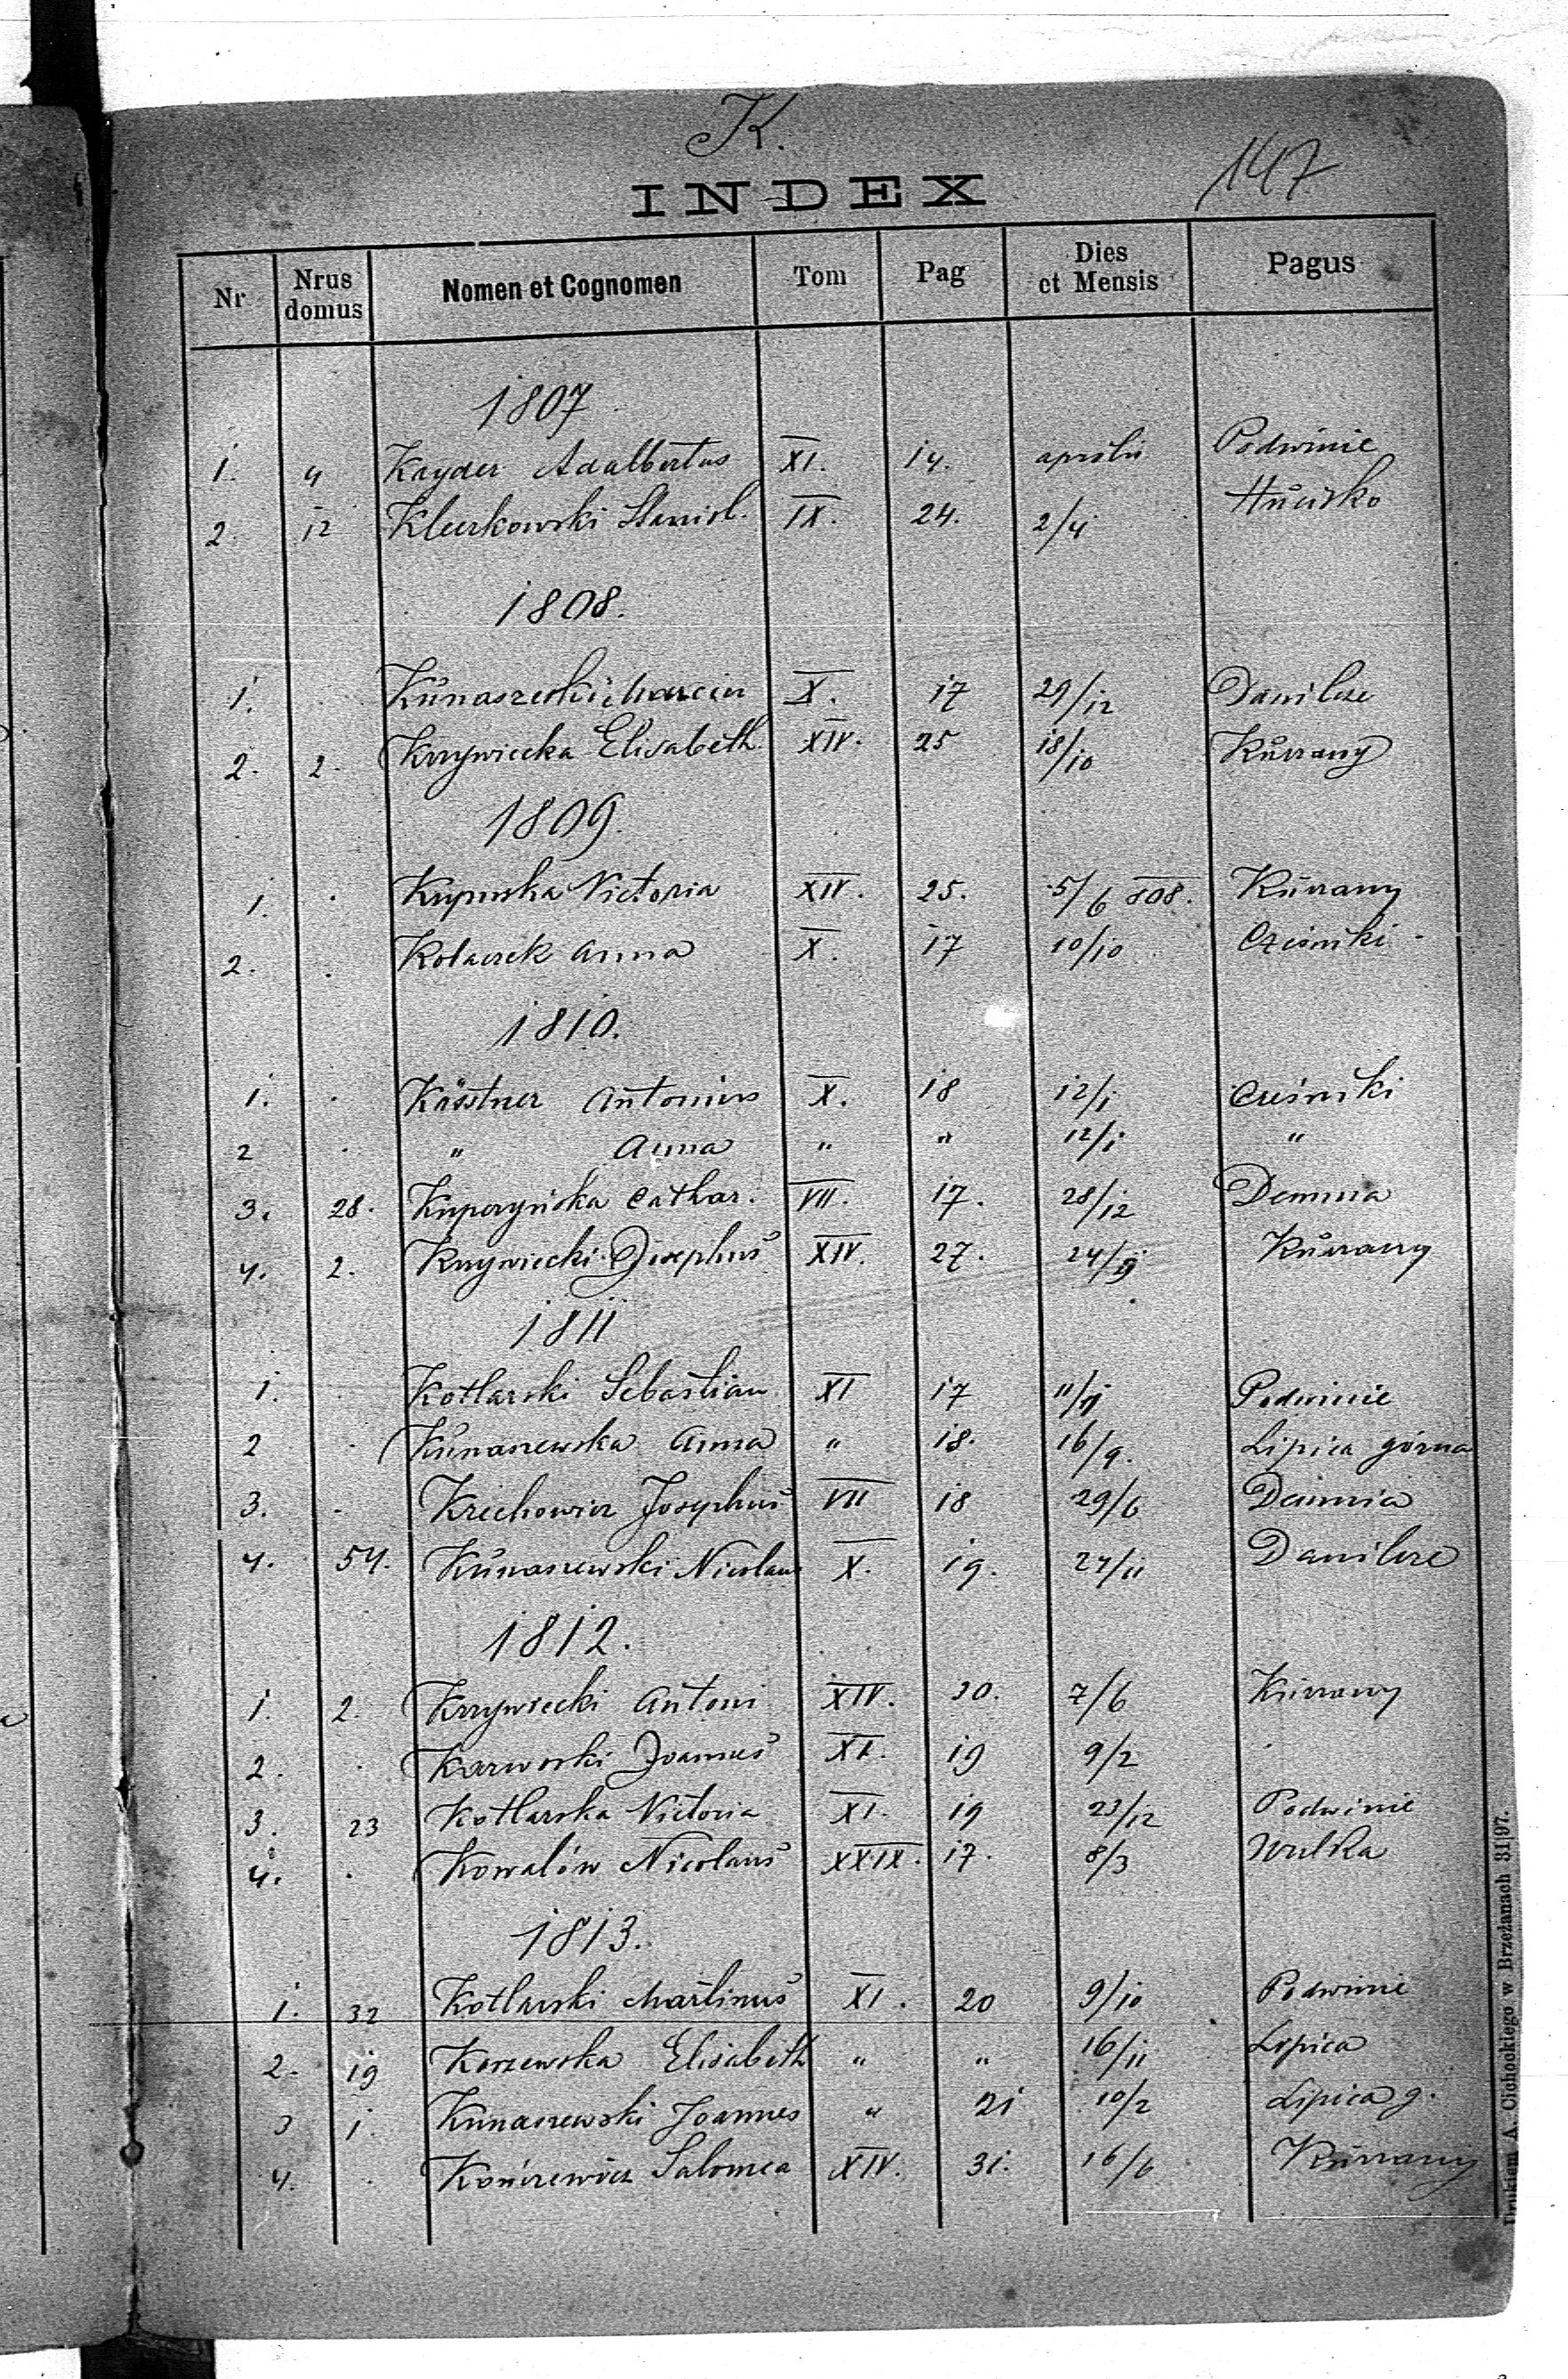 K.
147
INDEX
Nr Nrus domus Nomen et Cognomen Tom Pag Dies et Mensis Pagus
1807
1. 4 Kayder Adalbertus XI. 14. aprilis Podwinie
2. 12 Klurkowski Stanisl. IX. 24. 2/4 Hucisko
1808.
1. Kunaszewski Marcin X. 17 29/12 Danilcze
2. 2. Krzywiecka Elisabeth XIV. 25 18/10 Kurzany
1809.
1. . Victoria XIV. 25. 5/6 808. Kurzany
2. . Kołaczek Anna X. 17 10/10 Cześniki
1810.
1. . Kässtner Antonius X. 18 12/1 Cześniki
2 . " Anna " " 12/1 "
3. 28. Kuperzyńska Cathar. VII. 17. 28/12 Demnia
4. 2. Krzywiecki Josephus XIV. 27. 24/9 Kurzany
1811
1. . Kotlarski Sebastian XI 17 Podwinie
2 . Kunaszewska Anna " 18. 16/9. Lipica górna
3. . Krechowicz Josephus VII 18 29/6 Demnia
4. 54. Kunaszewski Nicolaus X. 19. 27/11 Danilcze
1812.
1. 2. Krzywiecki Antoni XIV. 30. 7/6 Kurzany
2. . Karwoski Joannes XI. 19 9/2 .
3. 23 Kotlarska Victoria XI. 19 23/12 Podwinie
4. . Kowalów Nicolaus XXIX. 17. 8/3 Wulka
1813.
1. 32 Kotlarski Martinus XI. 20 9/10 Podwinie
2. 19 Korzewska Elisabeth " " 16/11 Lipica
3 1. Kunaszewski Joannes " 21 10/2 Lipica g.
4. . Kończewicz Salomea XIV. 31. 16/6 Kurzany
Drukiem A. Cichockiego w Brzeżanach 31|97.